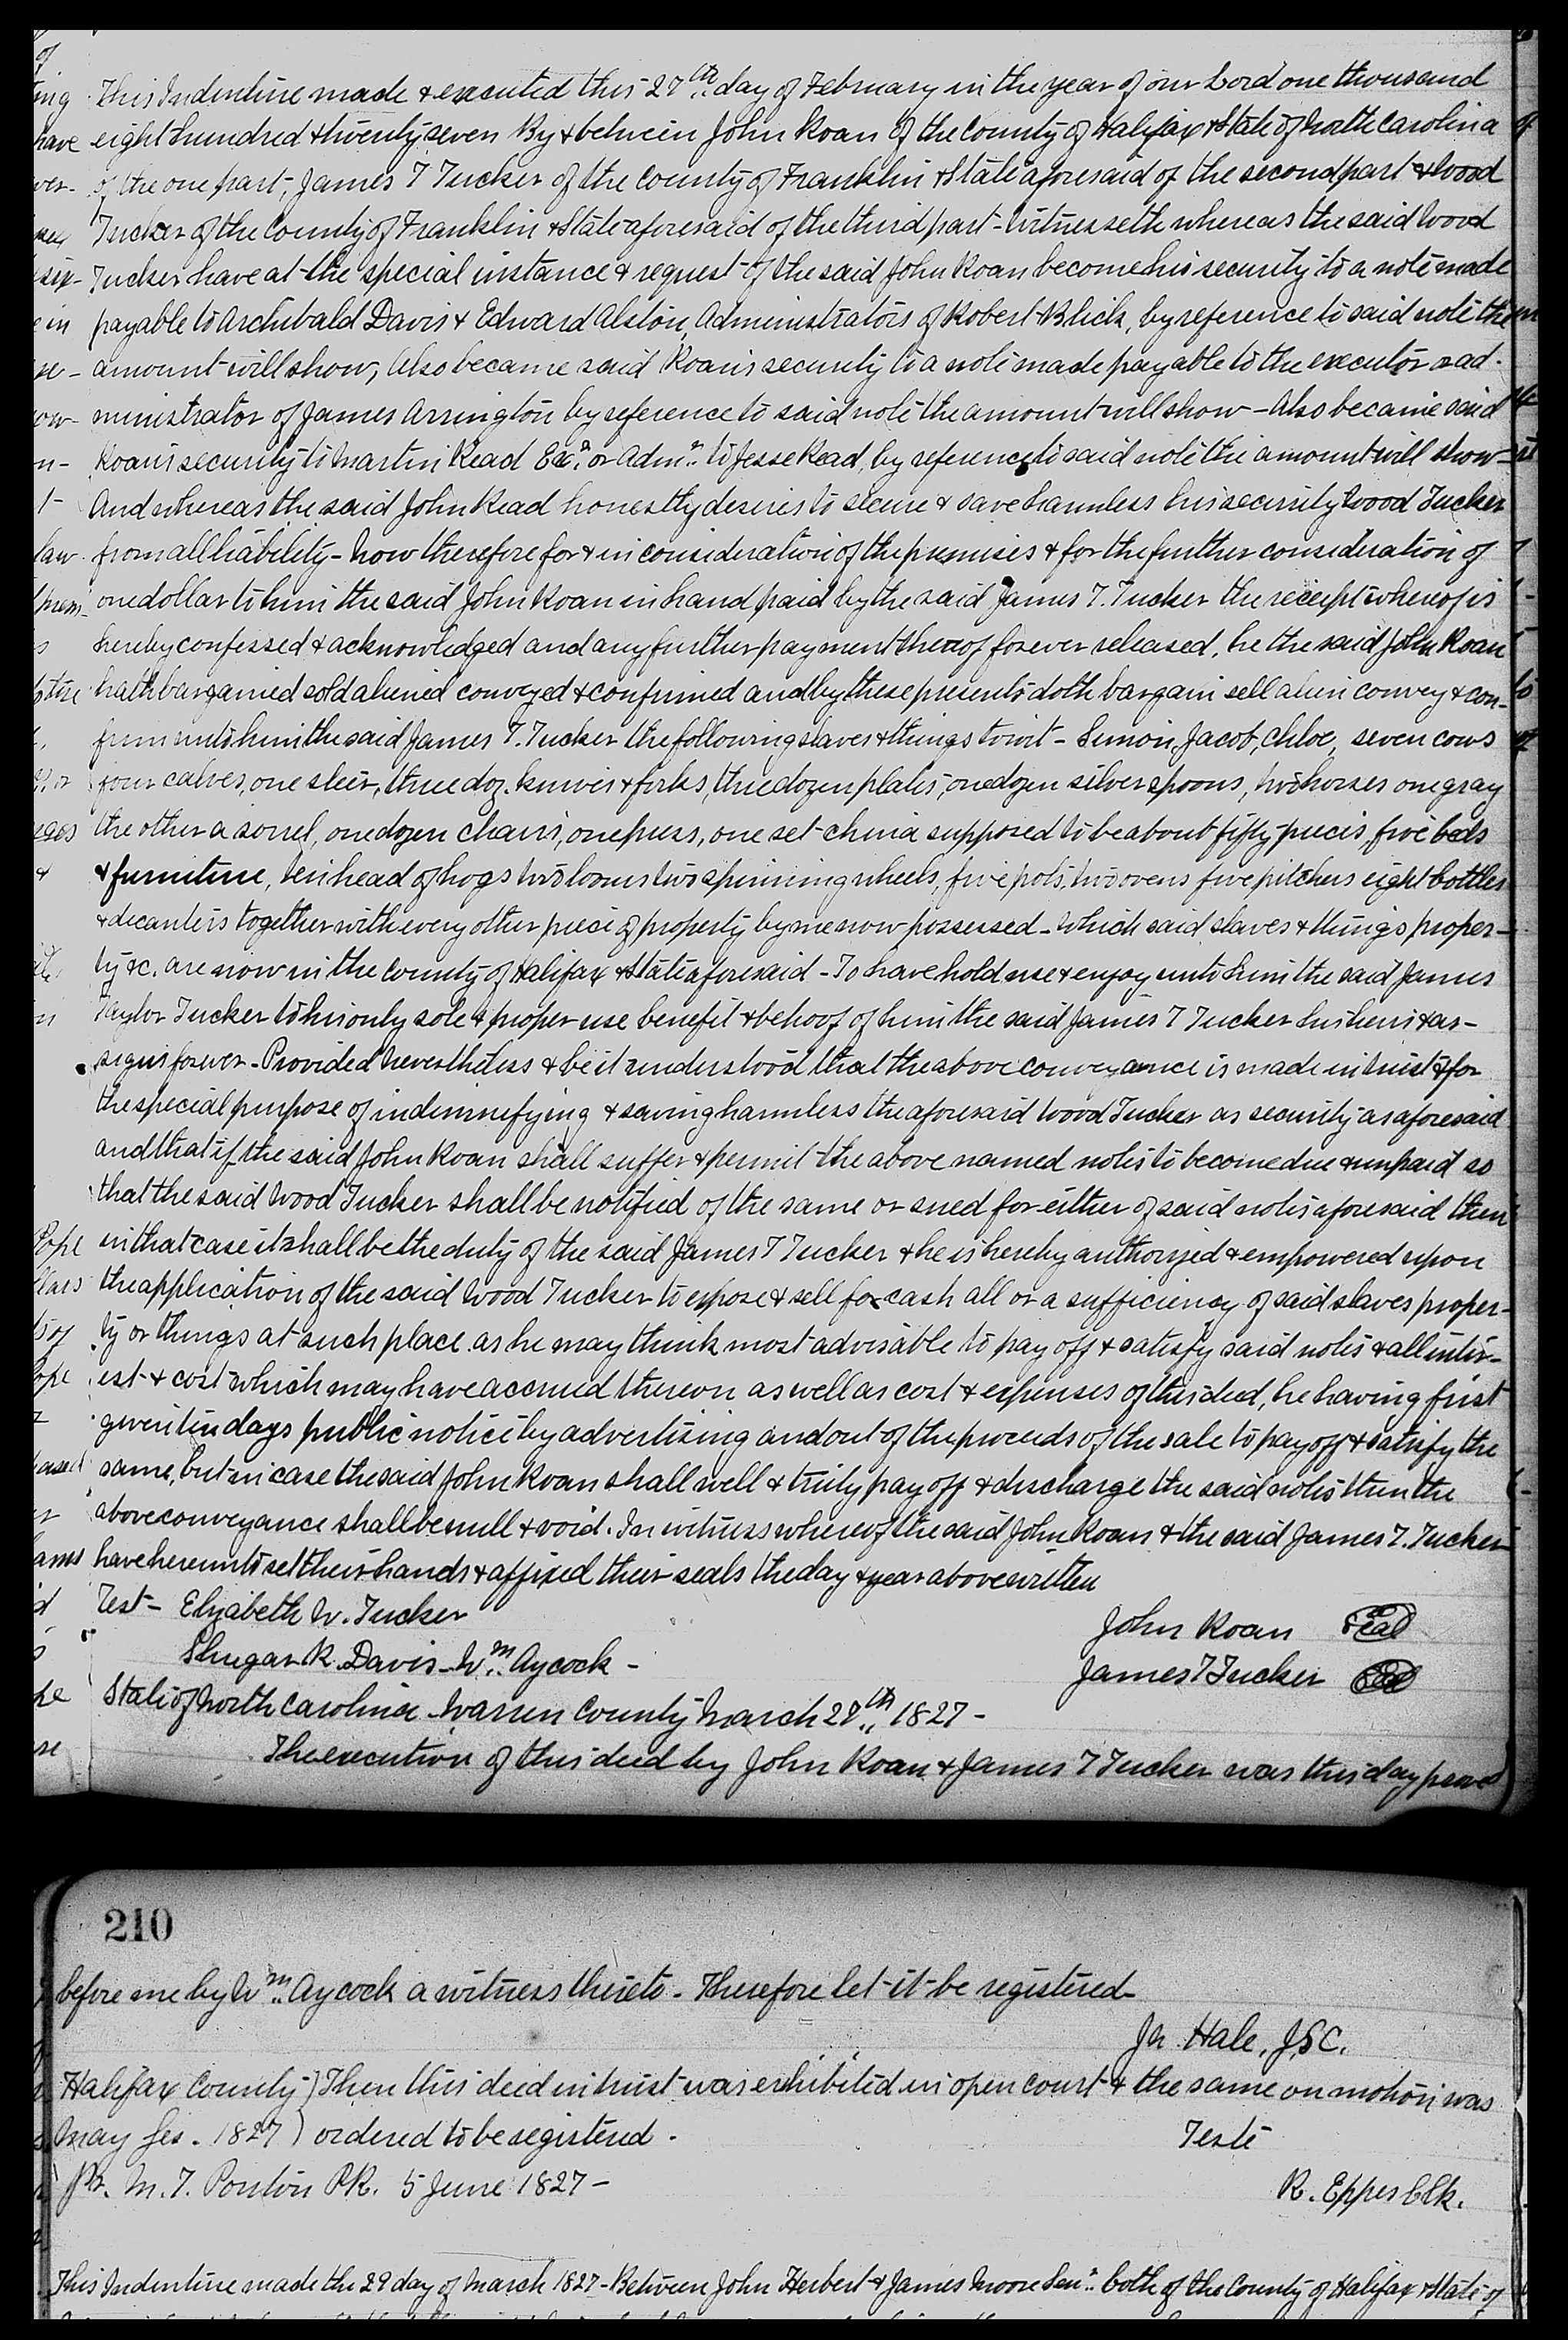 This Indenture made & executed this 27th day of February in the year of our Lord one thousand
eight hundred & twenty seven By & between John Roan of the County of Halifax & State of North Carolina
of the one part, James T Tucker of the County of Franklin & State aforesaid of the second part & Wood
Tucker of the County of Franklin & State aforesaid of the third part - Witnesseth whereas the said Wood
Tucker have at the special instance & request of the said John Roan become his security to a note made
payable to Archibald Davis & Edward Alston, Administrators of Robert Blick, by reference to said note the
amount will show, Also became said Roan's security to a note made payable to the executor or ad-
ministrator of James Arrington by reference to said note the amount will show - Also became said
Roan's security to Martin Read Exr. or Admr. to Jesse Read, by reference to said note the amount will show -
And whereas the said John Read honestly desires to secure & save harmless his security Wood Tucker
from all liability - Now therefore for & in consideration of the premises & for the further consideration of
one dollar to him the said John Roan in hand paid by the said James T. Tucker the receipt whereof is
hereby confessed & acknowledged and any further payment thereof forever released, he the said John Roan
hath bargained sold aliened conveyed & confirmed and by these presents doth bargain sell alien convey & con-
firm unto him the said James T. Tucker the following slaves & things to wit - Simon, Jacob, Chloe, seven cows
four calves, one steer, three doz. knives & forks, three dozen plates, one dozen silver spoons, two horses one gray
the other a sorrel, one dozen chairs, one press, one set china supposed to be about fifty pieces, five beds
& furniture, ten head of hogs two looms two spinning wheels, five pots, two ovens five pitchers eight bottles
& decanters together with every other piece of property by me now possessed - Which said slaves & things proper-
ty &c. are now in the County of Halifax & State aforesaid - To have hold use & enjoy unto him the said James
Taylor Tucker to his only sole & proper use benefit & behoof of him the said James T Tucker his heirs & as-
signs forever - Provided Nevertheless & be it understood that the above conveyance is made in trust & for
the special purpose of indemnefying & saving harmless the aforesaid Wood Tucker as security as aforesaid
and that if the said John Roan shall suffer & permit the above named notes to become due & unpaid so
that the said Wood Tucker shall be notified of the same or sued for either of said notes aforesaid then
in that case it shall be the duty of the said James T Tucker & he is hereby authorized & empowered upon
the application of the said Wood Tucker to expose & sell for cash all or a sufficiency of said slaves proper-
ty or things at such place as he may think most advisable to pay off & satisfy said notes & all inter-
est & cost which may have accrued thereon as well as cost & expenses of this deed, he having first
given ten days public notice by advertising and out of the proceeds of the sale to pay off & satisfy the
same, but in case the said John Roan shall well & truly pay off & discharge the said notes then the
above conveyance shall be null & void. In witness whereof the said John Roan & the said James T. Tucker
have hereunto set their hands & affixed their seals the day & year above written
Test - Elizabeth W. Tucker John Roan Seal
Shugar R. Davis - Wm. Aycock - James T Tucker Seal
State of North Carolina - Warren County March 27th 1827 -
The execution of this deed by John Roan & James T Tucker was this day proved
210
before me by Wm. Aycock a witness thereto - Therefore let it be registered
Jn. Hale, J.S.C.
Halifax County } Then this deed in trust was exhibited in open court & the same on motion was
May Ses. 1827 } ordered to be registered.
Teste
Pr. M. T. Ponton P.R. 5 June 1827 - R. Eppes Clk.
This Indenture made the 29 day of March 1827 - Between John Herbert & James Moore Senr. both of the County of Halifax & State of